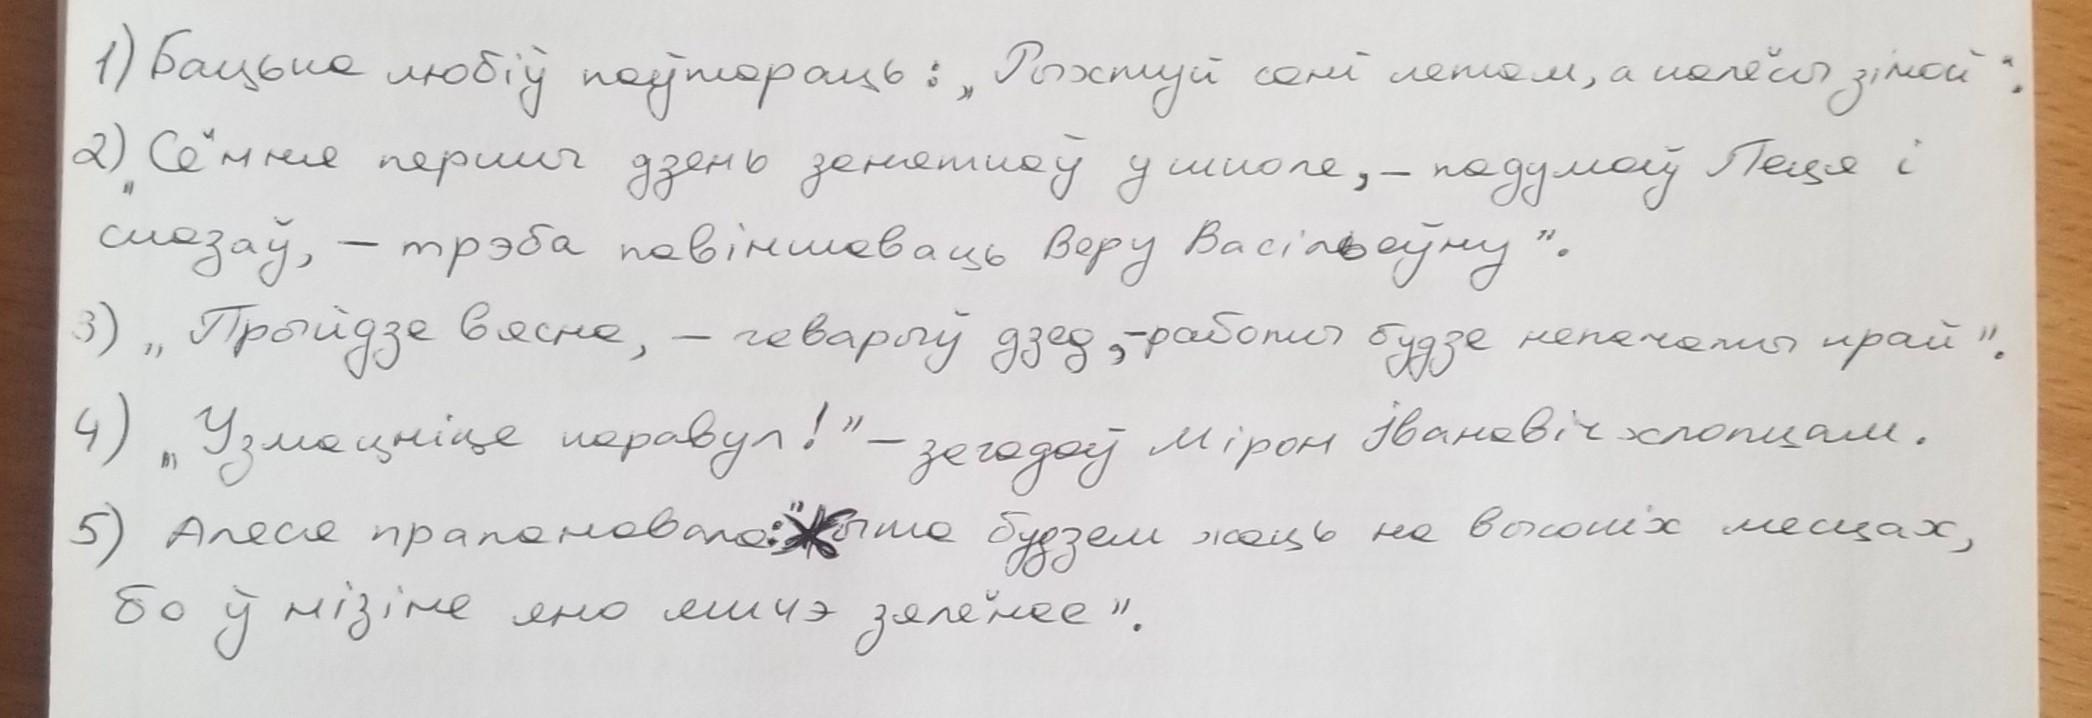 1) Бацька любіў паўтараць: „Рыхтуй сані летам, а калёсы зімой“.
2) „Сёння першы дзень заняткаў у школе, – падумаў Пеця і
сказаў, – трэба павіншаваць Веру Васільеўну”.
3) „Прыйдзе вясна, – гаварыў дзед, – работы будзе непачаты край”.
4) „Узмацніце каравул!” – загадаў Мірон Іванавіч хлопцам.
5) Алеся прапанавала: "Жыта будзем жаць на высокіх месцах,
бо ў нізіне яно яшчэ зялёнае”.